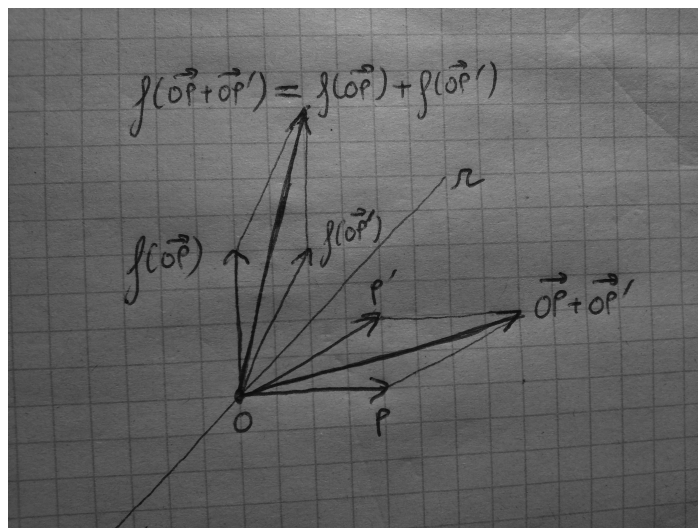 f(OP⃗+OP⃗′) = f(OP⃗)+f(OP⃗′)
r
f(OP⃗)
f(OP⃗′)
P′
OP⃗+OP⃗′
O
P